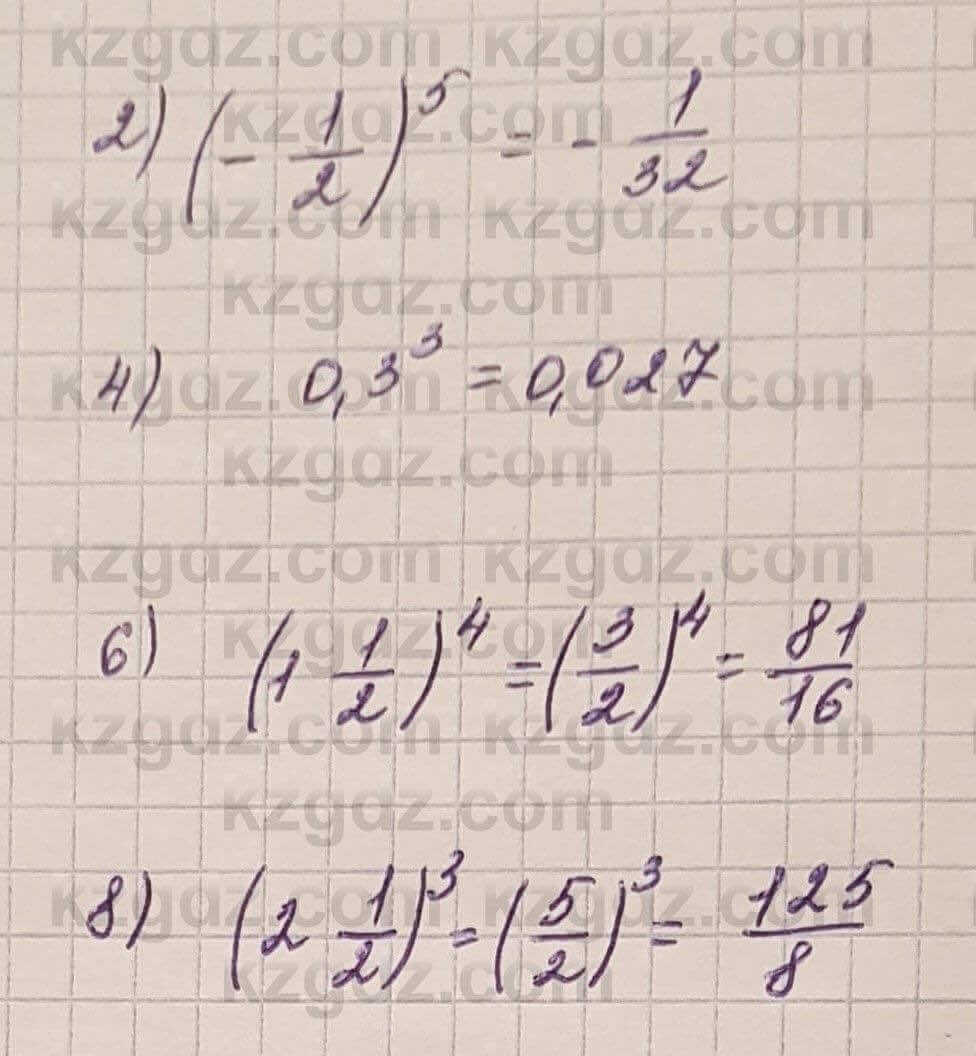 kzgdz.com kzgdz.com
kzgdz.com
2) (- 1/2)^5 = - 1/32
kzgdz.com kzgdz.com
kzgdz.com
4) 0,3^3 = 0,027
kzgdz.com kzgdz.com
kzgdz.com
kzgdz.com kzgdz.com
kzgdz.com
6) (1 1/2)^4 = (3/2)^4 = 81/16
kzgdz.com kzgdz.com
kzgdz.com
8) (2 1/2)^3 = (5/2)^3 = 125/8
kzgdz.com kzgdz.com
kzgdz.com